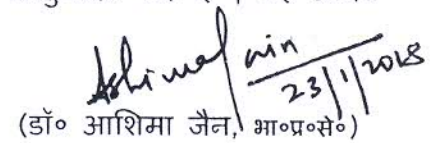 Ashima Jain
23/1/2018
(डॉ० आशिमा जैन, भा०प्र०से०)